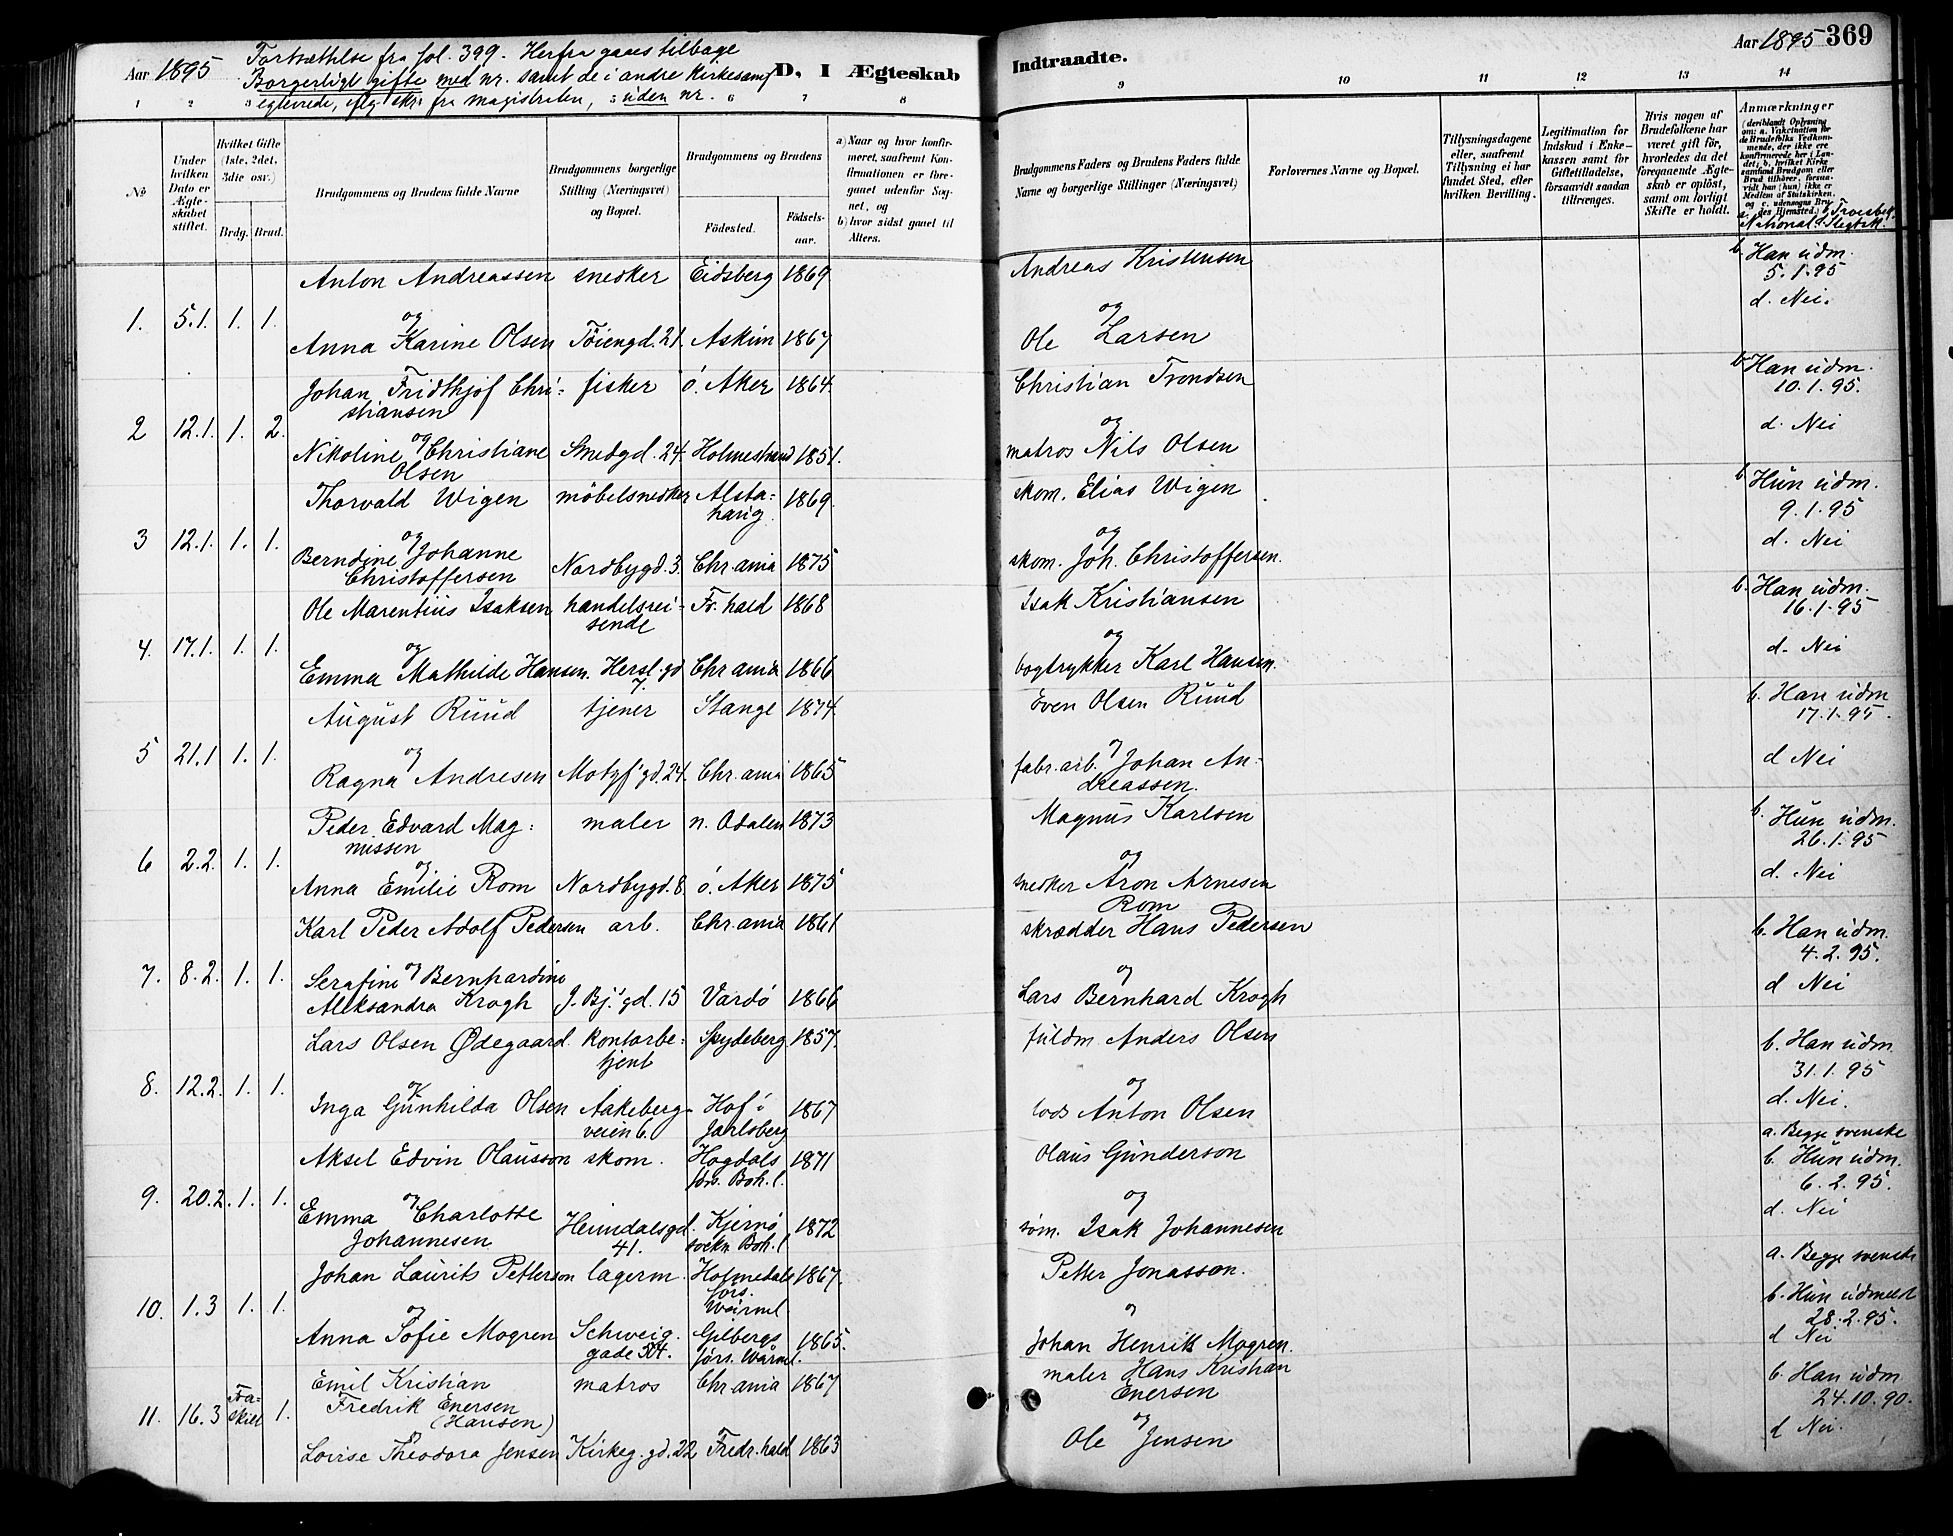 Aar 1895
Fortsættelse fra fol. 399. Herfra gaaes tilbage
Borgerligt gifte med nr. samt de i andre Kirkesamf.
egteviede, eflg. skr. fra magistraten, uden nr.
D, I Ægteskab
Indtraadte.
Aar 1895 369
1 2 3 5 6 7 8 9 10 11 12 13 14
№
Under hvilken Dato er Ægteskabet stiftet.
Hvilket Gifte (1ste, 2det, 3die osv.)
Brdg. Brud.
Brudgommens og Brudens fulde Navne
Brudgommens borgerlige Stilling (Næringsvei) og Bopæl.
Brudgommens og Brudens
Födested. Födselsaar.
a) Naar og hvor konfirmeret, saafremt Konfirmationen er foregaaet udenfor Sognet, og
b) hvor sidst gaaet til Alters.
Brudgommens Faders og Brudens Faders fulde Navne og borgerlige Stillinger (Næringsvei)
Forlovernes Navne og Bopæl.
Tillysningsdagene eller, saafremt Tillysning ei har fundet Sted, efter hvilken Bevilling.
Legitimation for Indskud i Enkekassen samt for Giftetilladelse, forsaavidt saadan tiltrænges.
Hvis nogen af Brudefolkene har været gift för, hvorledes da det foregaaende Ægteskab er oplöst, samt om lovligt Skifte er holdt.
Anmærkninger (deriblandt Oplysning om: a. Vakcination for de Brudefolks Vedkommende, der ikke ere konfirmerede her i Landet; b. hvilket Kirkesamfund Brudgom eller Brud tilhörer, forsaavidt han (hun) ikke er Medlem af Statskirken, og c. udensogns Brudes Hjemsted.)
a. National. b. Troesbek. d. Slegtsk.
Anton Andreassen snedker Eidsberg 1869 Andreas Kristensen b. Han udm. 5.1.95
1. 5.1. 1. 1. og og d. Nei.
Anna Karine Olsen Töiengd. 21. Askim 1867 Ole Larsen
Johan Fridthjof Christiansen fisker ö. Aker 1864. Christian Trondsen b. Han udm. 10.1.95.
2 12.1. 1. 2. og og d. Nei
Nikoline Christiane Olsen Smedgd. 24. Holmestrand 1851. matros Nils Olsen
Thorvald Wigen möbelsnedker Alstahaug 1869. skom. Elias Wigen b. Hun udm. 9.1.95
3 12.1. 1. 1. og og d. Nei
Berndine Johanne Christoffersen Nordbygd. 3. Chr.ania 1875 skom. Joh. Christoffersen.
Ole Marentius Isaksen handelsreisende Fr.hald 1868 Isak Kristiansen b. Han udm. 16.1.95
4. 17.1. 1. 1. og og d. Nei
Emma Mathilde Hansen. Hersl. gd 7. Chr.ania 1866 bogtrykker Karl Hansen.
August Ruud tjener Stange 1874. Even Olsen Ruud b. Han udm 17.1.95.
5 21.1 1. 1. og og d Nei
Ragna Andresen Motzf' gd. 24. Chr.ania 1865 fabr. arb. Johan Andreassen.
Peder Edvard Magnussen maler n. Odalen 1873 Magnus Karlsen b. Hun udm. 26.1.95
6 2.2. 1. 1. og og d. Nei
Anna Emilie Rom Nordbygd. 8 ö. Aker 1875 snedker Aron Arnesen Rom
Karl Peder Adolf Pedersen arb. Chr.ania 1861 skrædder Hans Pedersen b. Han udm. 4.2.95.
7. 8.2. 1. 1. og og d Nei
Serafine Bernhardine Aleksandra Krogh J. Bj.' gd. 15 Vardö 1866 Lars Bernhard Krogh
Lars Olsen Ødegaard kontorbetjent Spydeberg 1857. fuldm Anders Olsen b. Han udm. 31.1.95
8. 12.2. 1. 1. og og d. Nei.
Inga Gunhilda Olsen Aakebergveien 6. Hof i Jarlsberg 1867 lods Anton Olsen
Aksel Edvin Olausson skom. Hogdals sn. Boh. l. 1871 Olaus Gunderson a. Begge svenske b. Hun udm. 6.2.95.
9. 20.2. 1. 1. og og d. Nei
Emma Charlotte Johannesen Heimdalsgd. 41. Kjernö sockn Boh. l. 1872 søm. Isak Johannesen
Johan Laurits Petterson lagerm. Holmedals förs. Wärml. 1867. Petter Jonasson. a. Begge svenske
10. 1.3 1. 1. og og b. Hun udmeldt 28.2.95. d Nei
Anna Sofie Mogren Schweig. gade 54. Gilbergs förs. Wärml. 1865. Johan Henrik Mogren.
Emil Kristian Fredrik Enersen (Hansen) matros Chr.ania 1867 maler Hans Kristian Enersen b. Han udm. 24.10.90.
11. 16.3 Fraskilt 1. og og d Nei.
Lovise Theodora Jensen Kirkeg. gd. 22 Fredr.hald 1863 Ole Jensen